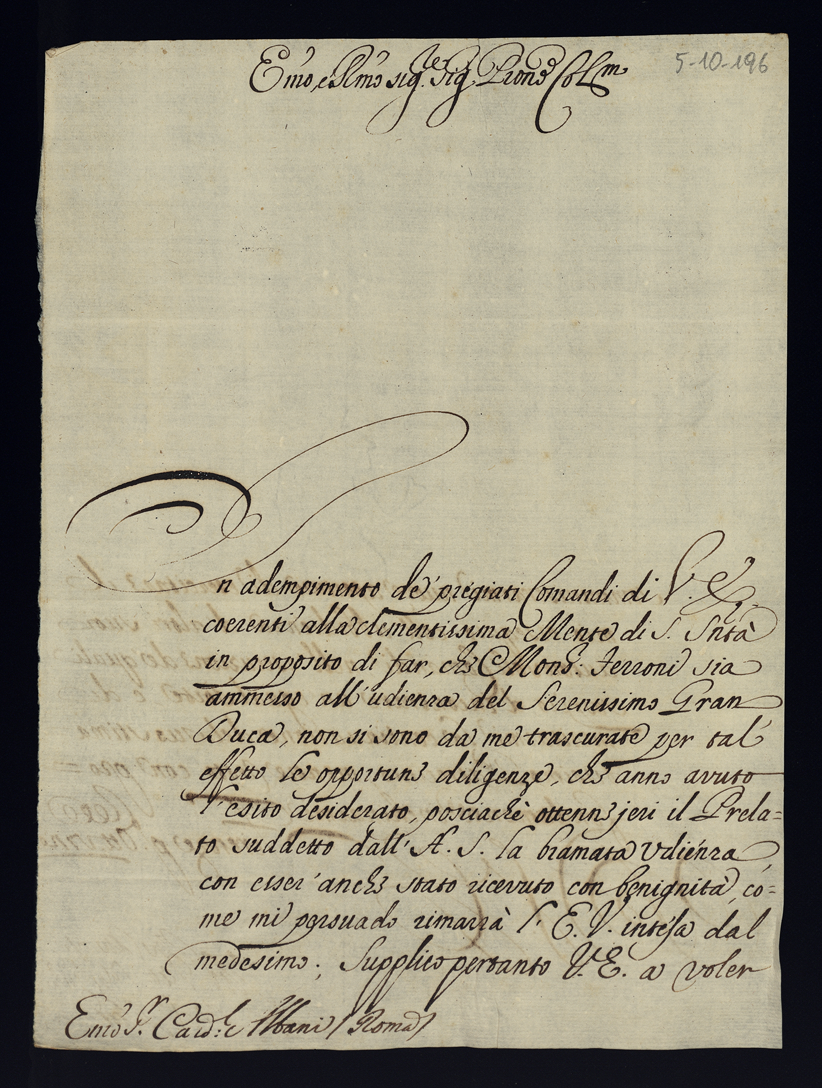 Emo e Rmo sig.re sig. Prone Colmo
5-10-196
In adempimento de' pregiati Comandi di V. E.
coerenti alla clementissima Mente di S. Sntà
in proposito di far, che Mons: Ferroni sia
ammesso all'udienza del Serenissimo Gran
Duca, non si sono da me trascurate per tal'
effetto le opportune diligenze, che anno avuto
l'esito desiderato, posciachè ottenne jeri il Prela=
to suddetto dall'A. S. la bramata Udienza
con esser' anche stato ricevuto con benignità, co=
me mi persuado rimarrà l'E. V. intesa dal
medesimo; Supplico pertanto V. E. a voler
Emo Sr. Card:le Albani / Roma /